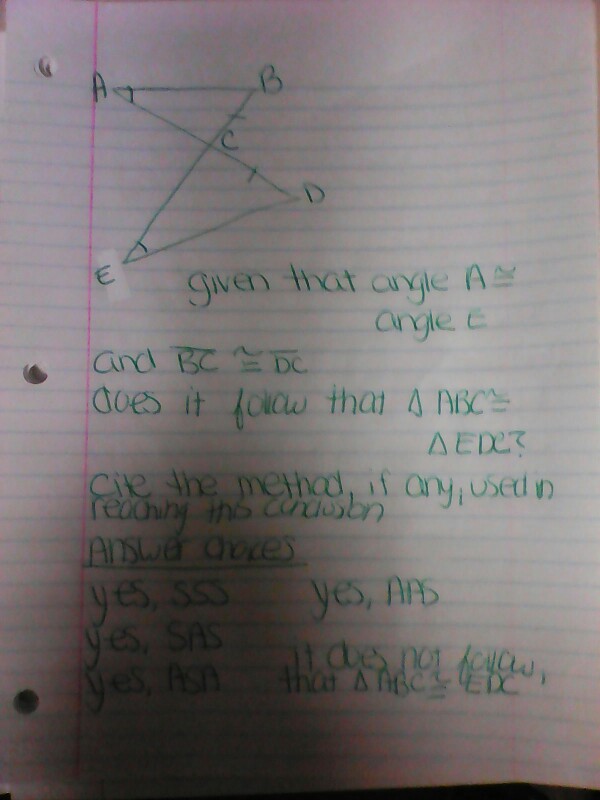 A
B
C
D
E
given that angle A ≅
angle E
and BC ≅ DC
does it follow that Δ ABC ≅
Δ EDC?
cite the method, if any, used in
reaching this conclusion
Answer choices
yes, SSS yes, AAS
yes, SAS
it does not follow,
yes, ASA that Δ ABC ≅ EDC